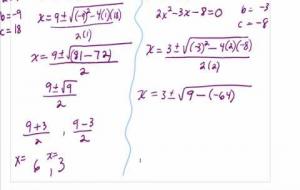 b=-9
c=18
x = 9±√(-9)²-4(1)(18)
2(1)
x = 9±√(81-72)
2
9±√9
2
9+3 , 9-3
2 2
x= x=
6 , 3
2x²-3x-8=0
b= -3
c= -8
x = 3 ± √(-3)²-4(2)(-8)
2(2)
x = 3 ± √9-(-64)